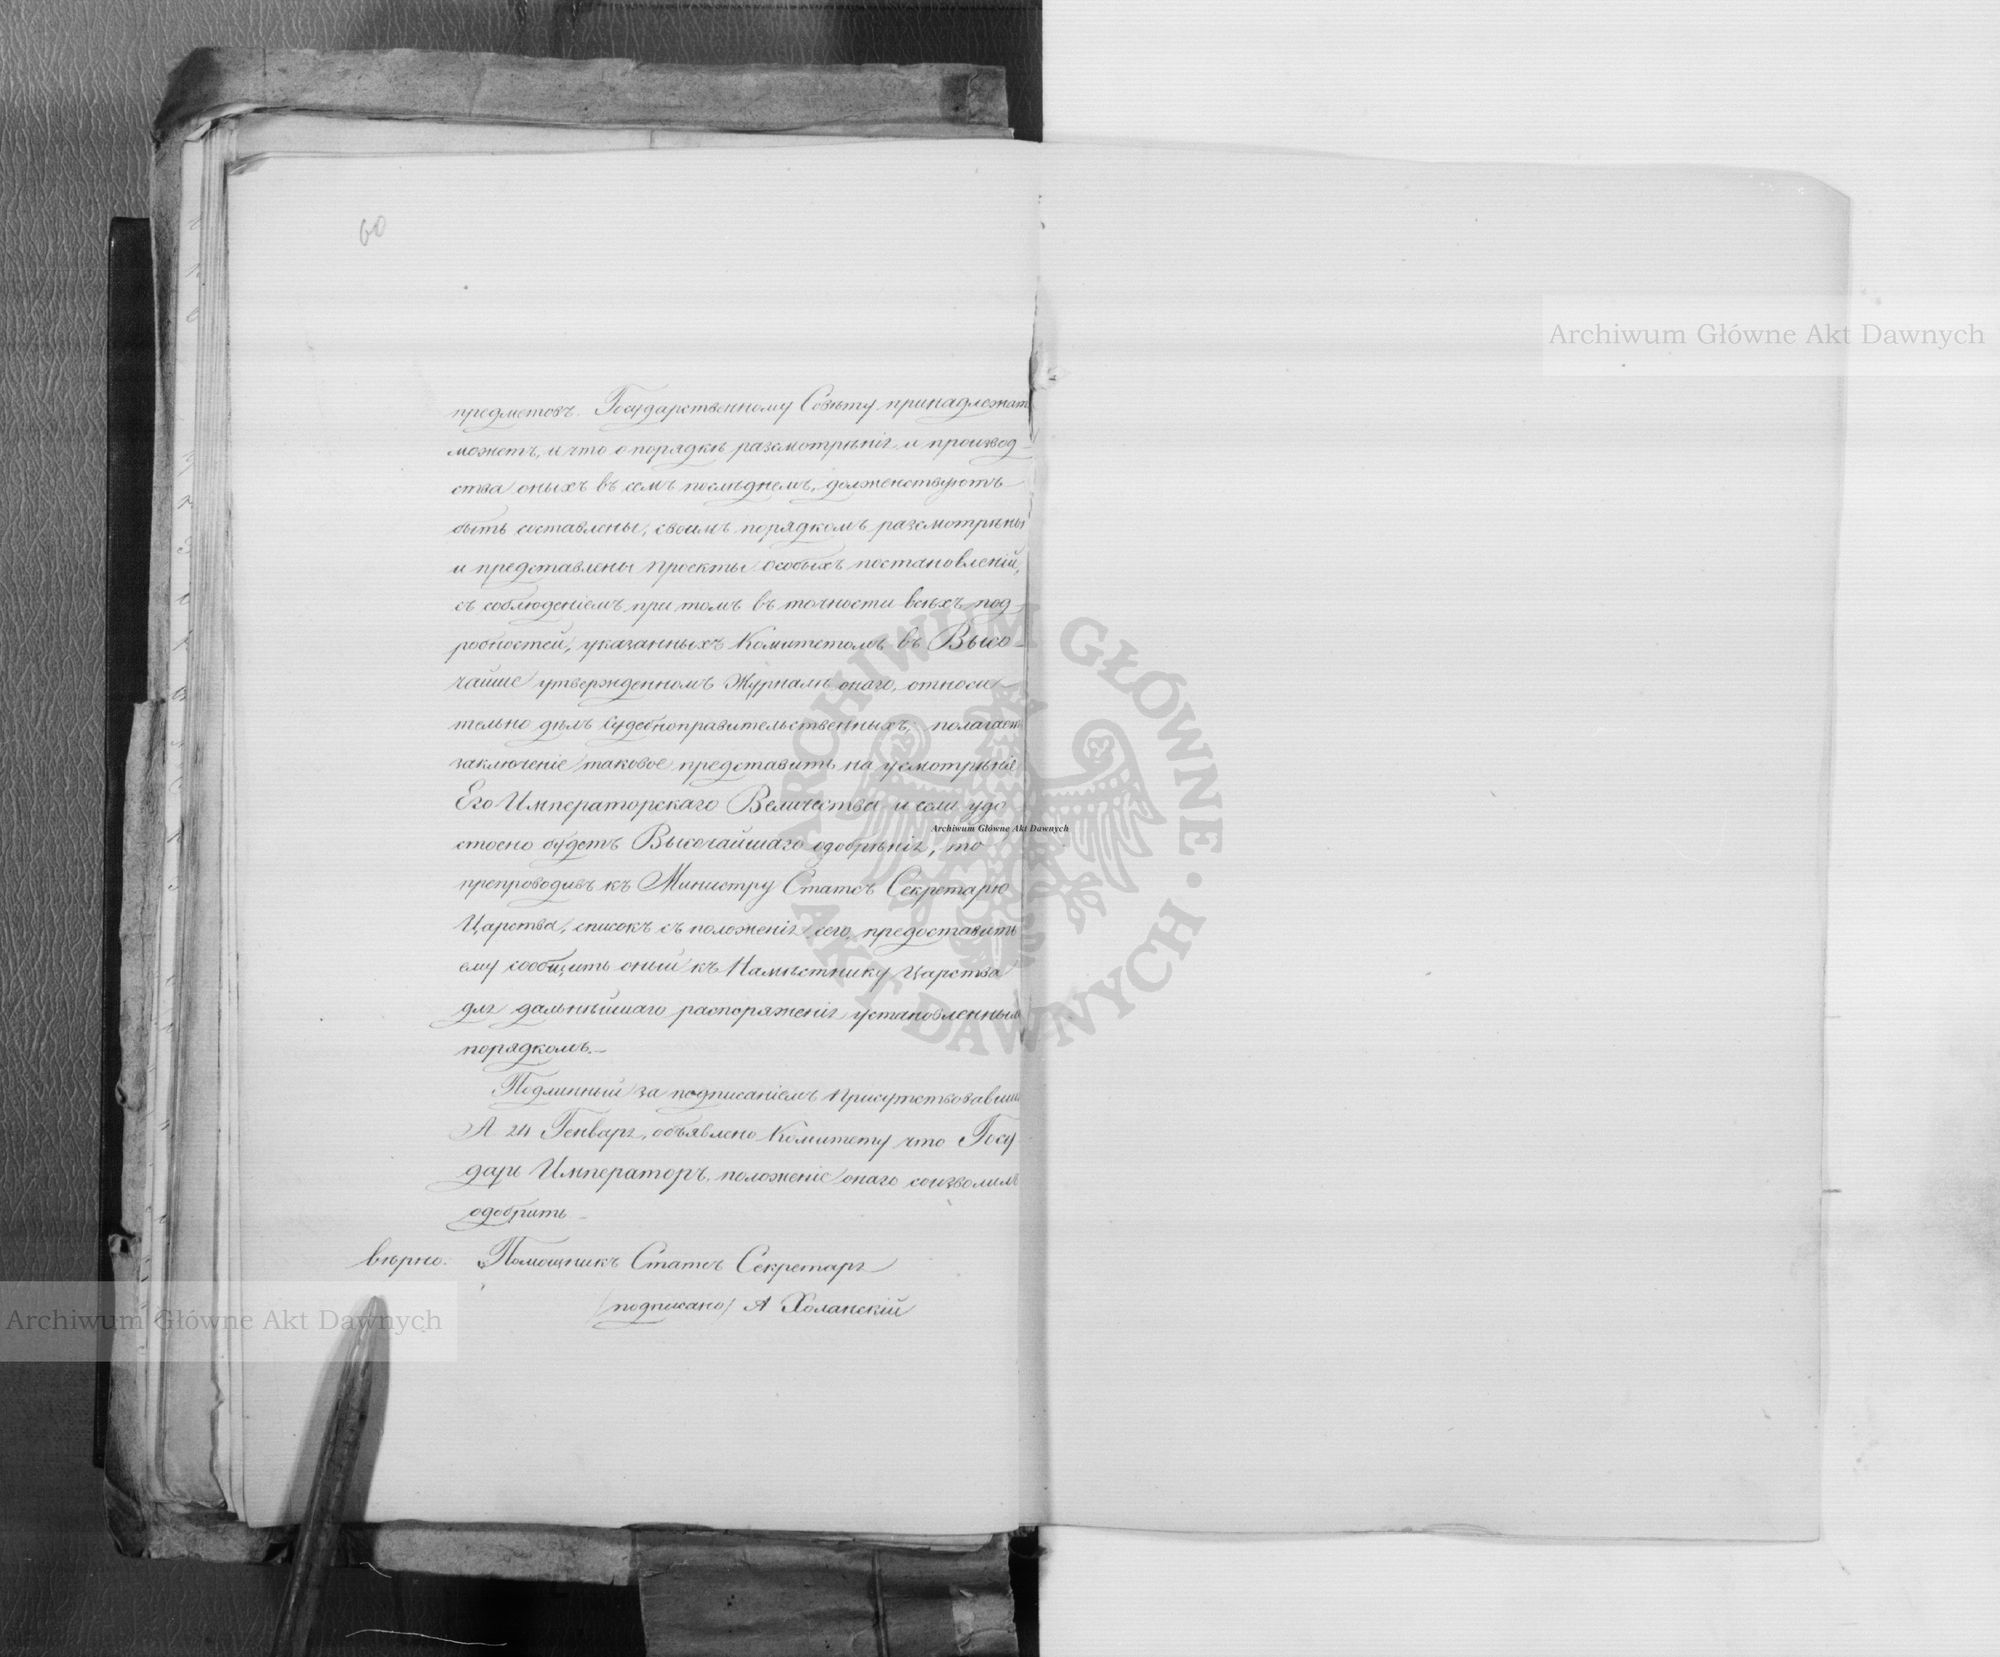 60
предметовъ. Государственному Совѣту принадлежать
можетъ, и что о порядкѣ разсмотрѣнія и производ-
ства оныхъ въ семъ послѣднемъ, долженствуютъ
быть составлены, своимъ порядкомъ разсмотрѣны
и представлены проекты особыхъ постановленій,
съ соблюденіемъ при томъ въ точности всѣхъ под-
робностей, указанныхъ Комитетомъ въ Высо-
чайше утвержденномъ Журналѣ онаго, относи-
тельно дѣлъ судебноправительственныхъ; полагаетъ
заключеніе таковое представить на усмотрѣніе
Его Императорскаго Величества и если удо
стоено будетъ Высочайшаго одобрѣнія, то
препроводивъ къ Министру Статсъ Секретарю
Царства, списокъ съ положенія сего, предоставить
ему сообщить оный къ Намѣстнику Царства
для дальнѣйшаго распоряженія установленнымъ
порядкомъ.—
Подлинный за подписаніемъ Присутствовавши
А 24 Генваря, объявлено Комитету что Госу
дарь Императоръ, положеніе онаго соизволилъ
одобрить
вѣрно: Помощникъ Статсъ Секретаря
/подписано/ А Холанскій
Archiwum Główne Akt Dawnych
Archiwum Główne Akt Dawnych
Archiwum Główne Akt Dawnych
ARCHIWUM GŁÓWNE • AKT DAWNYCH •